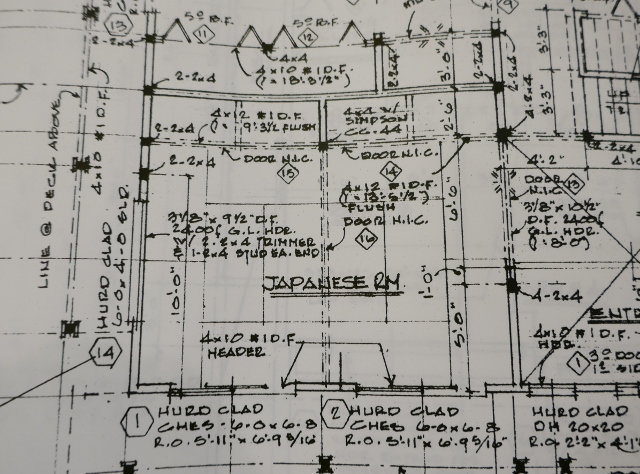 13
2-2x4
5⁰ B.F.
11
5⁰ B.F.
12
4x4
4x10 #1 D.F.
(L=18'-3½")
2-2x4
2-2x4
3'-0"
3'-3"
9
2-2x4
2-2x4
4x12 #1 D.F.
9'-3½ FLUSH
4x4 W/
SIMPSON
CC-44
2'-6"
4-2x4
3'-3"
2-2x4
DOOR N.I.C.
DOOR N.I.C.
15
14
2-2x4
4'-2"
2-2x4
4'-10
LINE @ DECK ABOVE
4x10 #1 D.F.
4x12 #1 D.F.
FLUSH
DOOR N.I.C.
16
6'-6"
DOOR
N.I.C.
13
3⅛" x 9½ D.F.
2400f G.L. HDR.
2-2x4 TRIMMER
1-2x4 STUD EA. END
3⅛" x 10½
D.F. 2400f
G.L. HDR.
10'-0"
JAPANESE RM
1'-0"
4-2x4
HURD CLAD
6-0x4-0 SLD.
14
5'-0"
4x10 #1 D.F.
HEADER
ENTR
4x10 #1 D.F.
HDR.
1
1
HURD CLAD
CHES - 6-0x6-8
R.O. 5'-11" x 6'-9 5/16"
2
HURD CLAD
CHES - 6-0x6-8
R.O. 5'-11" x 6'-9 5/16"
HURD CLAD
DH 20x20
R.O. 2'-2" x 4'-1